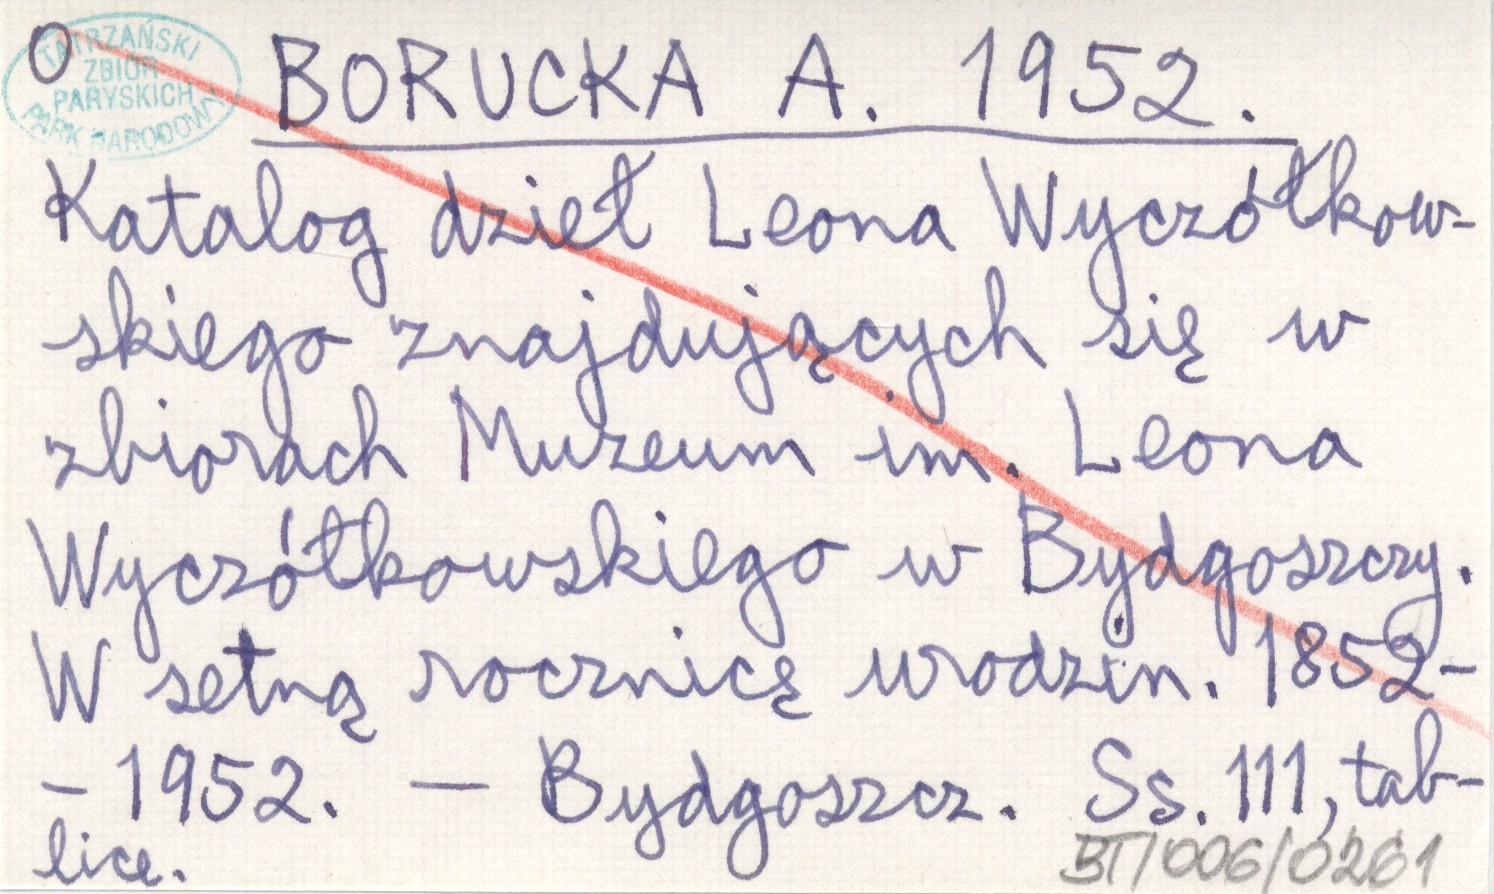 O
TATRZAŃSKI
ZBIÓR
PARYSKICH
PARK NARODOWY
BORUCKA A. 1952.
Katalog dzieł Leona Wyczółkow-
skiego znajdujących się w
zbiorach Muzeum im. Leona
Wyczółkowskiego w Bydgoszczy.
W setną rocznicę urodzin. 1852-
- 1952. — Bydgoszcz. Ss. 111, tab-
lice.
BT/006/0261